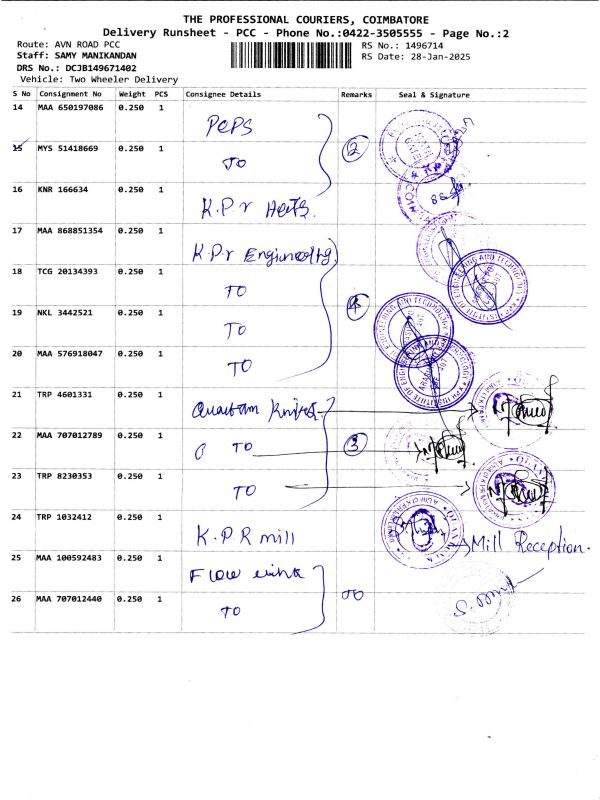 THE PROFESSIONAL COURIERS, COIMBATORE
Delivery Runsheet - PCC - Phone No.:0422-3505555 - Page No.:2
Route: AVN ROAD PCC
RS No.: 1496714
Staff: SAMY MANIKANDAN
RS Date: 28-Jan-2025
DRS No.: DCJB149671402
Vehicle: Two Wheeler Delivery
S No Consignment No Weight PCS Consignee Details Remarks Seal & Signature
14 MAA 650197086 0.250 1 PCPS
15 MYS 51418669 0.250 1 TO 2
16 KNR 166634 0.250 1 K.P.r
17 MAA 868851354 0.250 1 K.P.r
18 TCG 20134393 0.250 1 TO
19 NKL 3442521 0.250 1 TO 4
20 MAA 576918047 0.250 1 TO
21 TRP 4601331 0.250 1
22 MAA 707012789 0.250 1 TO 3
23 TRP 8230353 0.250 1 TO
24 TRP 1032412 0.250 1 K.P.R mill Mill Reception.
25 MAA 100592483 0.250 1 Flow
26 MAA 707012440 0.250 1 TO TO